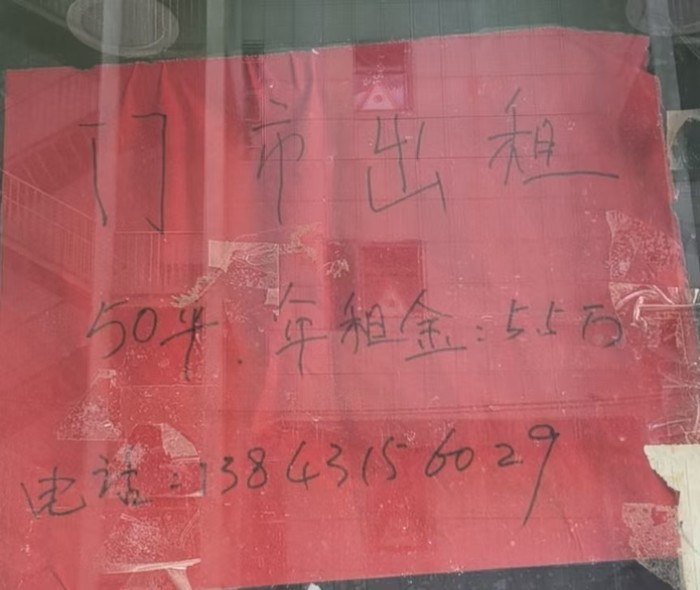 门市出租
50平.年租金:5.5万
电话:13843156029